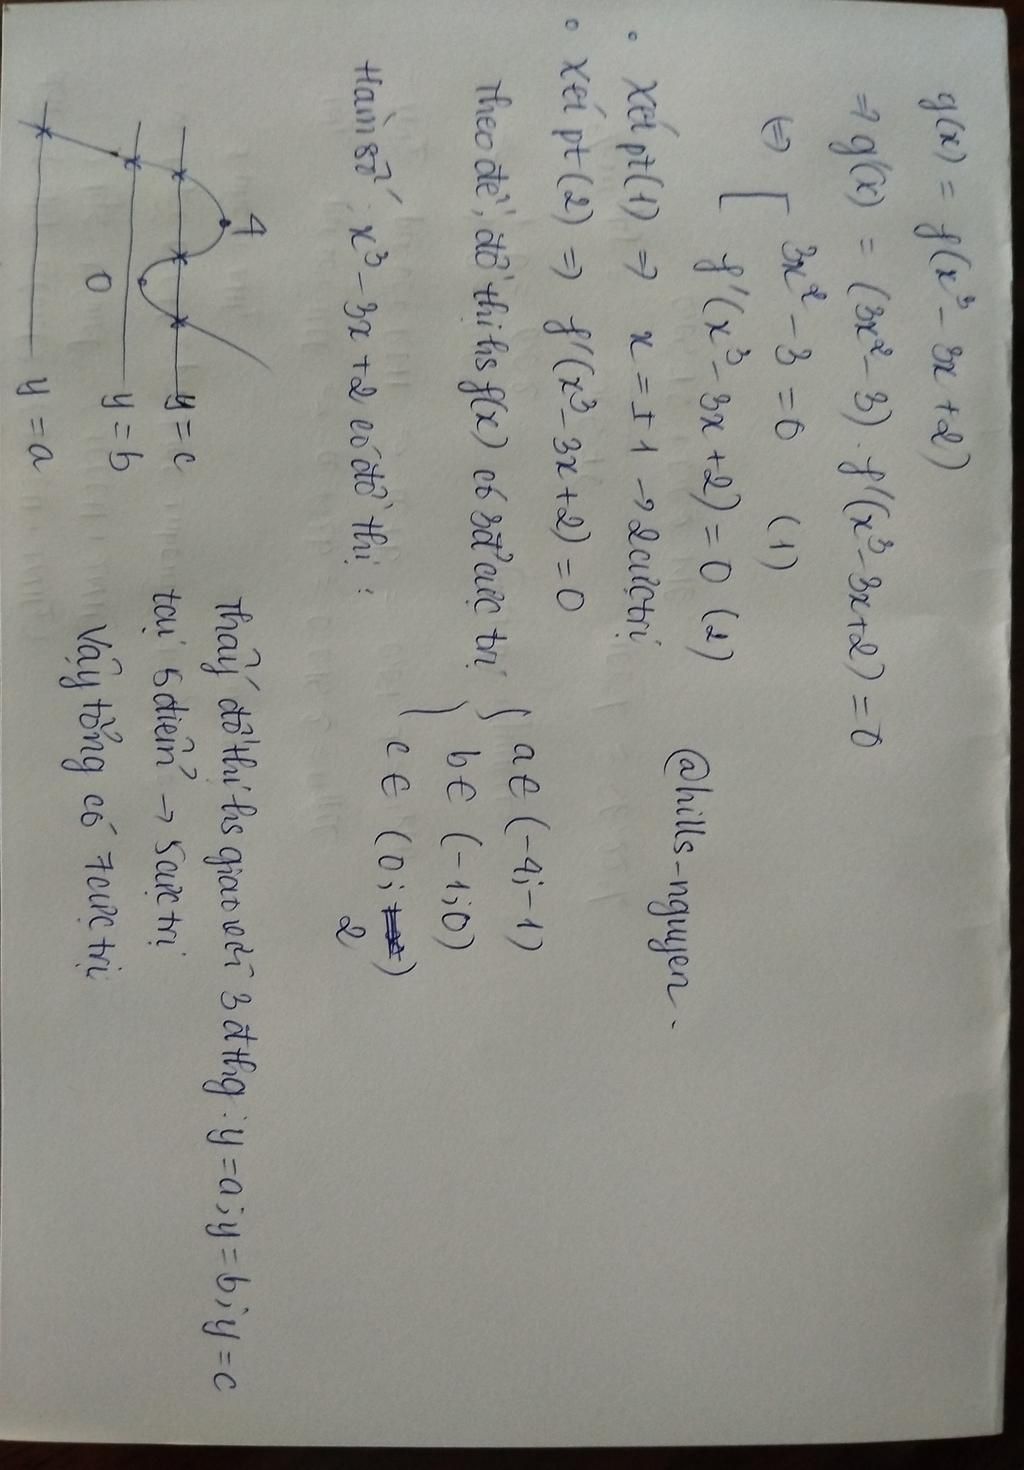 g(x) = f(x³ - 3x + 2)
⇒ g'(x) = (3x² - 3) . f'(x³ - 3x + 2) = 0
⇔ [ 3x² - 3 = 0 (1)
f'(x³ - 3x + 2) = 0 (2)
@hills-nguyen.
• Xét pt(1) ⇒ x = ± 1 → 2 cực trị
• Xét pt(2) ⇒ f'(x³ - 3x + 2) = 0
Theo đề, đồ thị hs f(x) có 3đ cực trị { a ∈ (-4; -1)
b ∈ (-1; 0)
c ∈ (0; 2)
Hàm số x³ - 3x + 2 có đồ thị :
4
y = c
0
y = b
y = a
Thấy đồ thị hs giao với 3 đ thg : y = a ; y = b ; y = c
tại 5 điểm → 5 cực trị
Vậy tổng có 7 cực trị